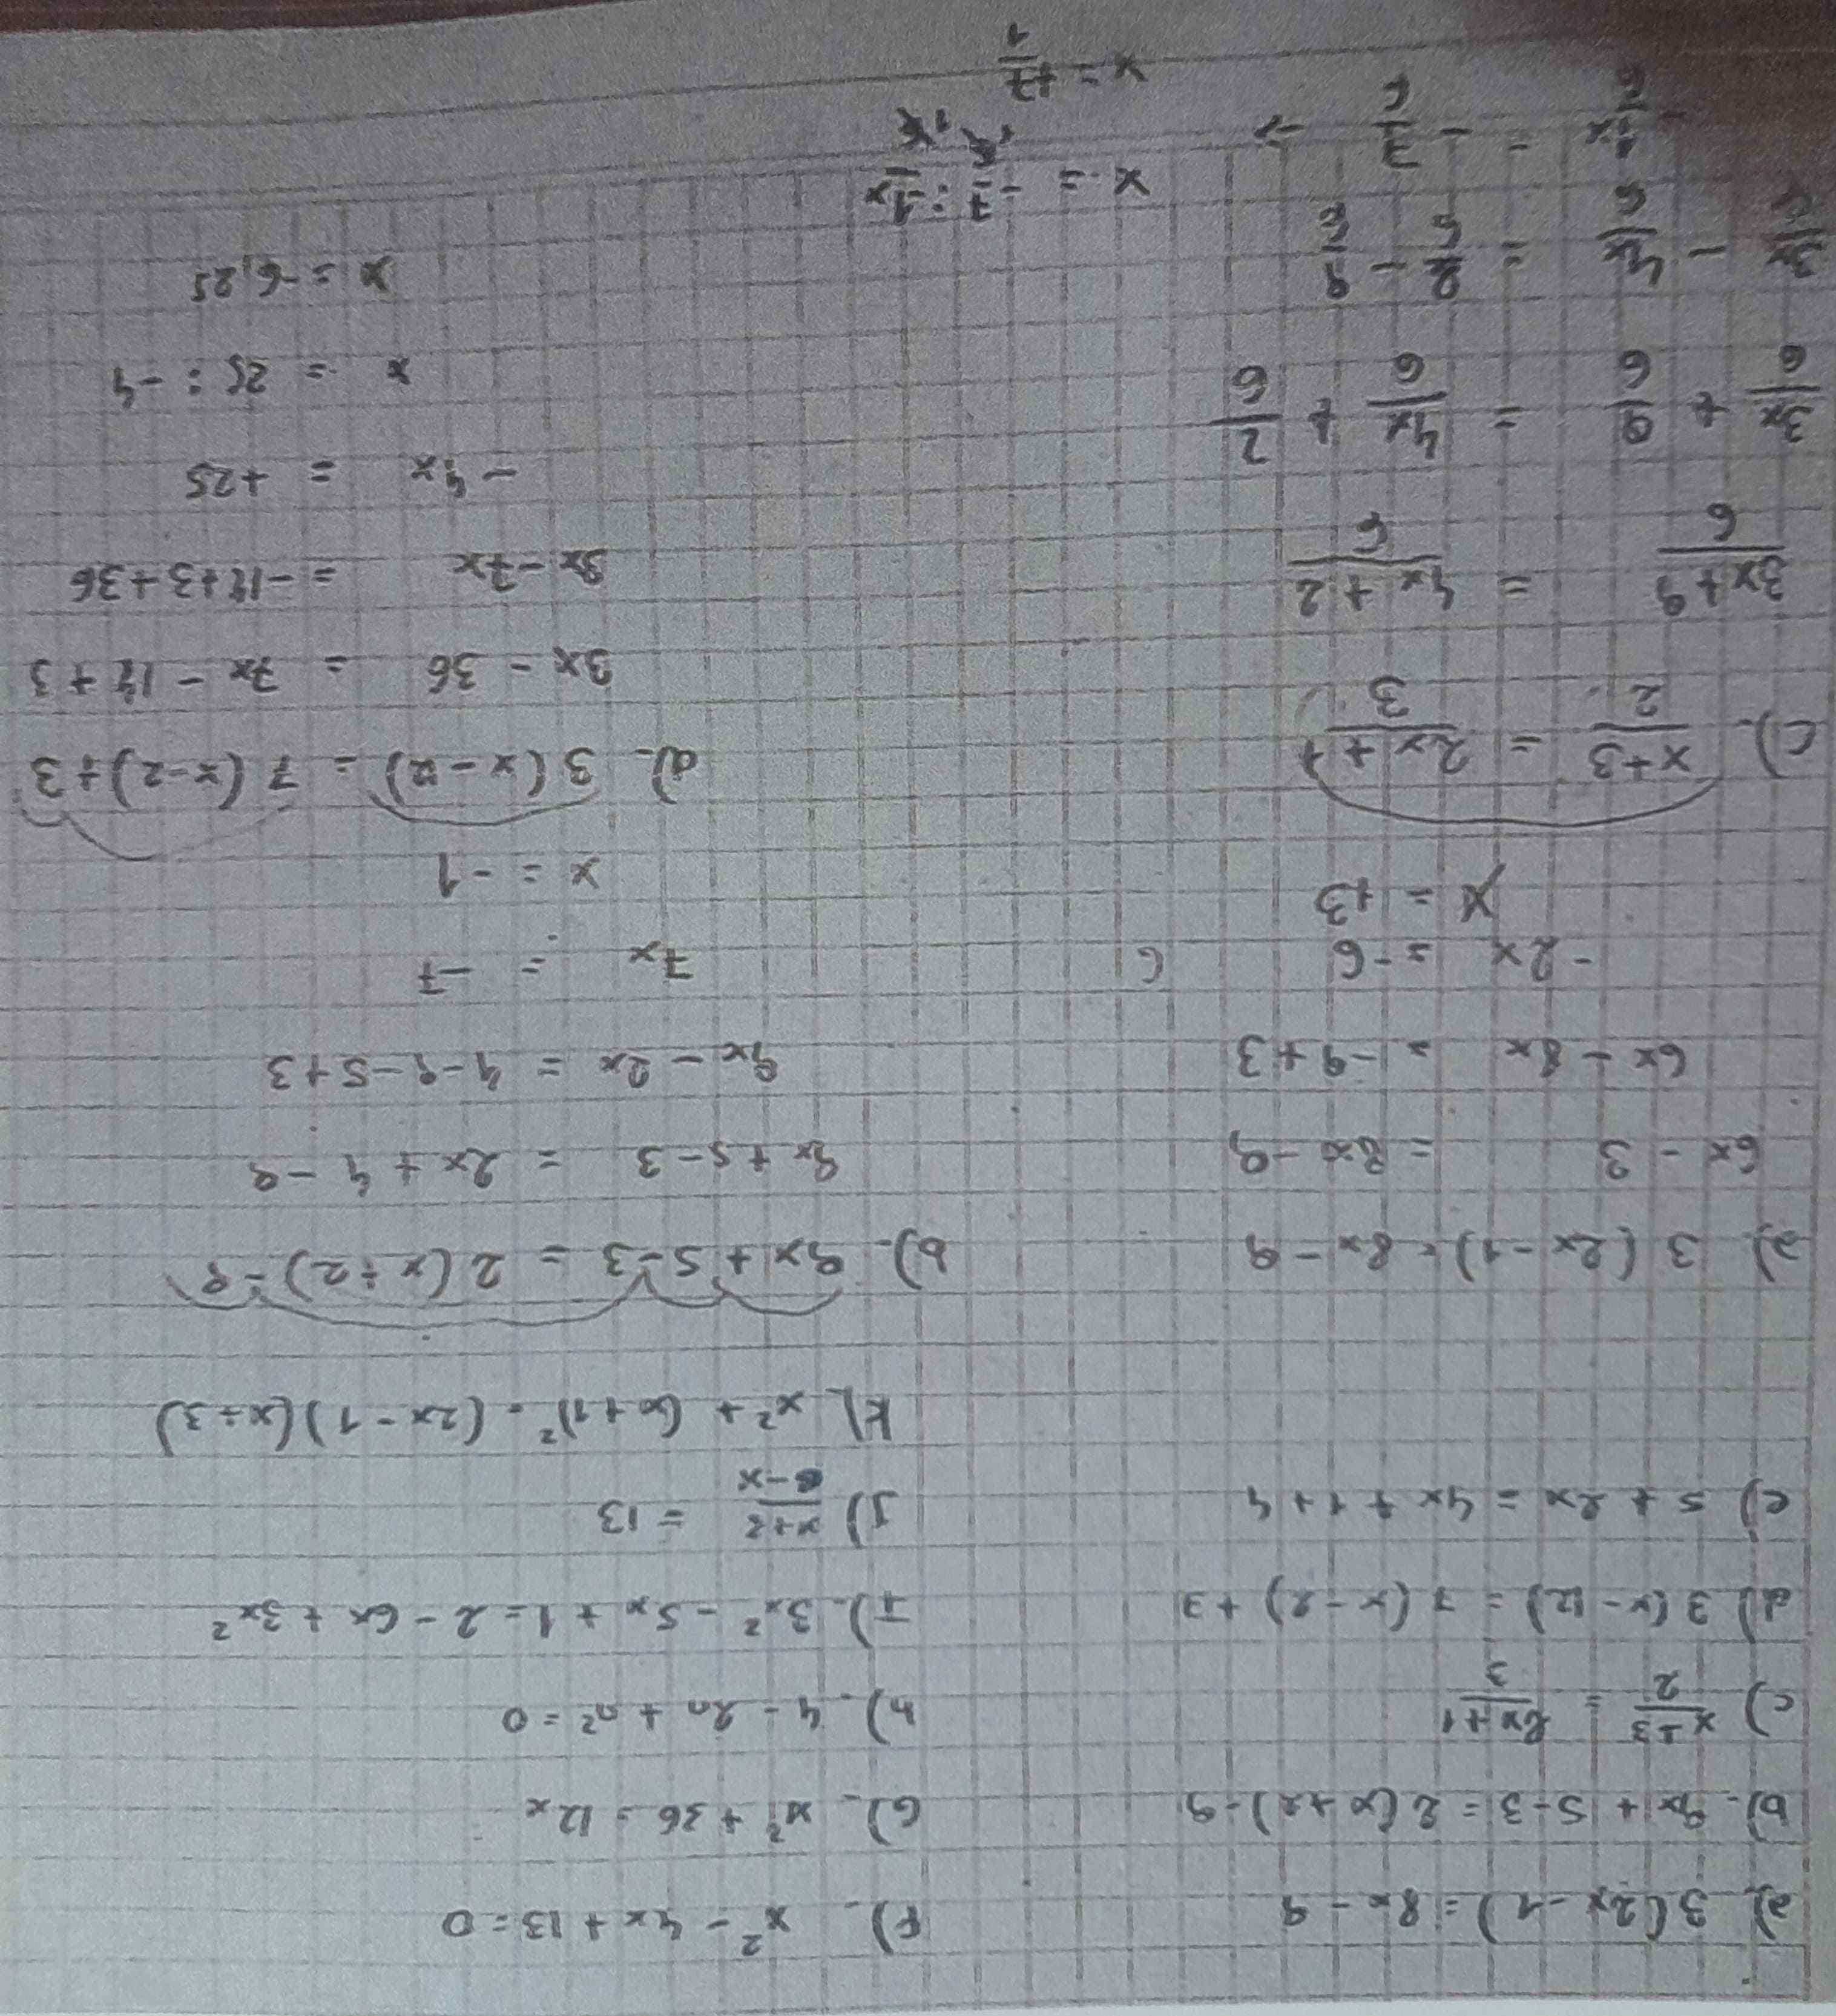 a). 3(2x-1)=8x-9
f)- x² - 4x + 13 = 0
b)- 9x + 5-3 = 2(x+2)-9
G)- x² + 36 = 12x
c) x+3/2 = 2x+1/3
h)- 4 - 2n + n² = 0
d) 3(x-12) = 7(x-2)+3
I)- 3x² - 5x + 1 = 2 - 6x + 3x²
e) 5 + 2x = 4x + 1 + 4
J) x+2/6-x = 13
K). x² + (x+1)² = (2x-1)(x+3)
a). 3(2x-1) = 8x - 9
6x - 3 = 8x - 9
6x - 8x = -9 + 3
-2x = -6 6
x = +3
b)- 9x + 5-3 = 2(x+2)-9
9x + 5-3 = 2x + 4 - 9
9x - 2x = 4-9-5+3
7x = -7
x = -1
c)- x+3/2 = 2x+1/3
3x+9/6 = 4x+2/6
3x/6 + 9/6 = 4x/6 + 2/6
3x/6 - 4x/6 = 2/6 - 9/6
-1x/6 = -7/6 →
x = -7/6 : -1x/6
x = +7/1
d)- 3(x-12) = 7(x-2)+3
3x - 36 = 7x - 14 + 3
3x - 7x = -14+3+36
-4x = +25
x = 25 : -4
x = -6,25